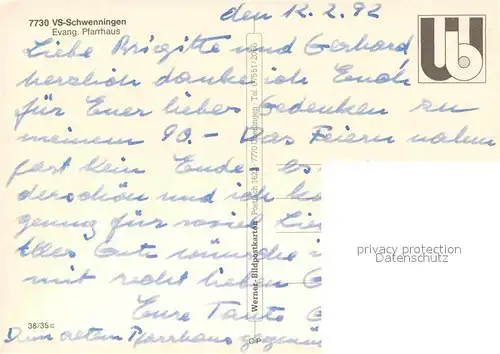 7730 VS-Schwenningen
Evang. Pfarrhaus
den 12.2.92
Liebe Brigitte und Gerhard
herzlich danke ich Euch
für Euer liebes Gedenken zu
meinem 90.- Das Feiern nahm
fast kein Ende, es
derschön und ich
genug für soviel Lie
Alles Gute wünsche i
mit recht lieben G
Eure Tante G
Dem altem Pfarrhaus gegenü
38/35c
Werner-Bildpostkarten
privacy protection
Sammlerparadies